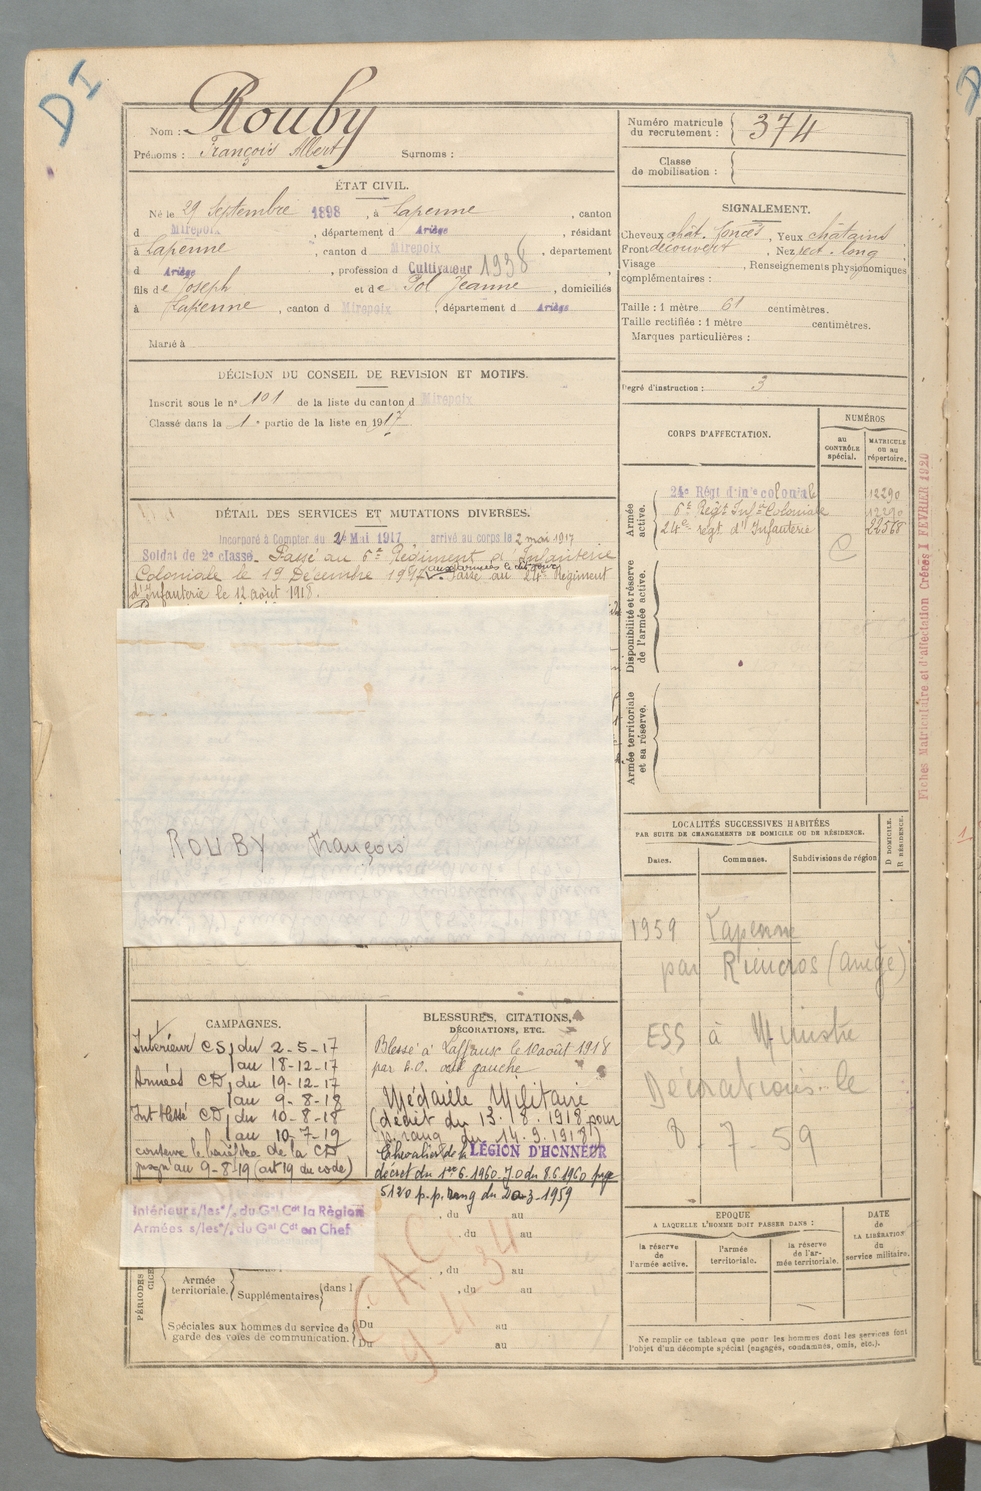 DI
Nom : Rouby
Prénoms : François Albert Surnoms :
ÉTAT CIVIL.
Né le 29 Septembre 1898, à Lapenne, canton
d Mirepoix, département d Ariège, résidant
à Lapenne, canton d Mirepoix, département
d Ariège, profession d Cultivateur 1938,
fils de Joseph et de Pol Jeanne, domiciliés
à Lapenne, canton d Mirepoix, département d Ariège
Marié à
DÉCISION DU CONSEIL DE REVISION ET MOTIFS.
Inscrit sous le n° 101 de la liste du canton d Mirepoix
Classé dans la 1e partie de la liste en 1917.
DÉTAIL DES SERVICES ET MUTATIONS DIVERSES.
Incorporé à Compter du 2 Mai 1917, arrivé au corps le 2 mai 1917
Soldat de 2e classe. Passé au 6e Régiment d'Infanterie
Coloniale le 19 Décembre 1917. Passé au 24e Régiment
d'Infanterie le 12 août 1918.
ROUBY François
CAMPAGNES.
Intérieur CS, du 2-5-17
au 18-12-17
Armées CD, du 19-12-17
au 9-8-18
Int blessé CD, du 10-8-18
au 10-7-19
conserve le bénéfice de la CD
jusqu'au 9-8-19 (art 19 du code)
Intérieur s/les °/, du Gal Cdt la Région
Armées s/les °/, du Gal Cdt en Chef
BLESSURES, CITATIONS,
DÉCORATIONS, ETC.
Blessé à Laffaux le 10 août 1918
par E.O. gauche
Médaille Militaire
(décret du 13.8.1918 pour
p. rang du 14.9.1918)
Chevalier de la LÉGION D'HONNEUR
décret du 1er.6.1960. JO du 8.6.1960 page
5120 p.p. rang du 20-3-1959
, du au
, du au
, du au
, du au
PÉRIODES
Armée
territoriale. Supplémentaires dans l
Spéciales aux hommes du service de Du au
garde des voies de communication. Du au
CAC
9 4 34
Numéro matricule
du recrutement : 374
Classe
de mobilisation :
SIGNALEMENT.
Cheveux chât. foncés, Yeux châtains
Front découvert, Nez rect. long,
Visage , Renseignements physionomiques
complémentaires :
Taille : 1 mètre 61 centimètres.
Taille rectifiée : 1 mètre centimètres.
Marques particulières :
Degré d'instruction : 3
CORPS D'AFFECTATION.
NUMÉROS
au
CONTRÔLE
spécial.
MATRICULE
ou au
répertoire.
Armée
active.
24e Régt d'infie coloniale 12290
6e Régt Infie Coloniale 12290
24e régt d'Infanterie 22568
C
Disponibilité et réserve
de l'armée active.
Armée territoriale
et sa réserve.
Fiches Matriculaire et d'affectation Créées 1 FEVRIER 1920
LOCALITÉS SUCCESSIVES HABITÉES
PAR SUITE DE CHANGEMENTS DE DOMICILE OU DE RÉSIDENCE.
D DOMICILE.
R RÉSIDENCE.
Dates. Communes. Subdivisions de région
1959 Lapenne
par Rieucros (Ariège)
ESS à Ministre
Décorations le
8-7 59
EPOQUE
A LAQUELLE L'HOMME DOIT PASSER DANS :
la réserve
de
l'armée active.
l'armée
territoriale.
la réserve
de l'ar-
mée territoriale.
DATE
de
LA LIBÉRATION
du
service militaire.
Ne remplir ce tableau que pour les hommes dont les services font
l'objet d'un décompte spécial (engagés, condamnés, omis, etc.).